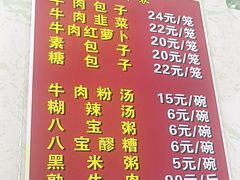 牛肉韭菜
包子 24元/笼
牛肉红萝卜
包子 22元/笼
素包子 20元/笼
糖包子 22元/笼
牛肉粉汤 15元/碗
糊辣汤 6元/碗
八宝粥 6元/碗
八宝醪糟 6元/碗
黑米粥 5元/碗